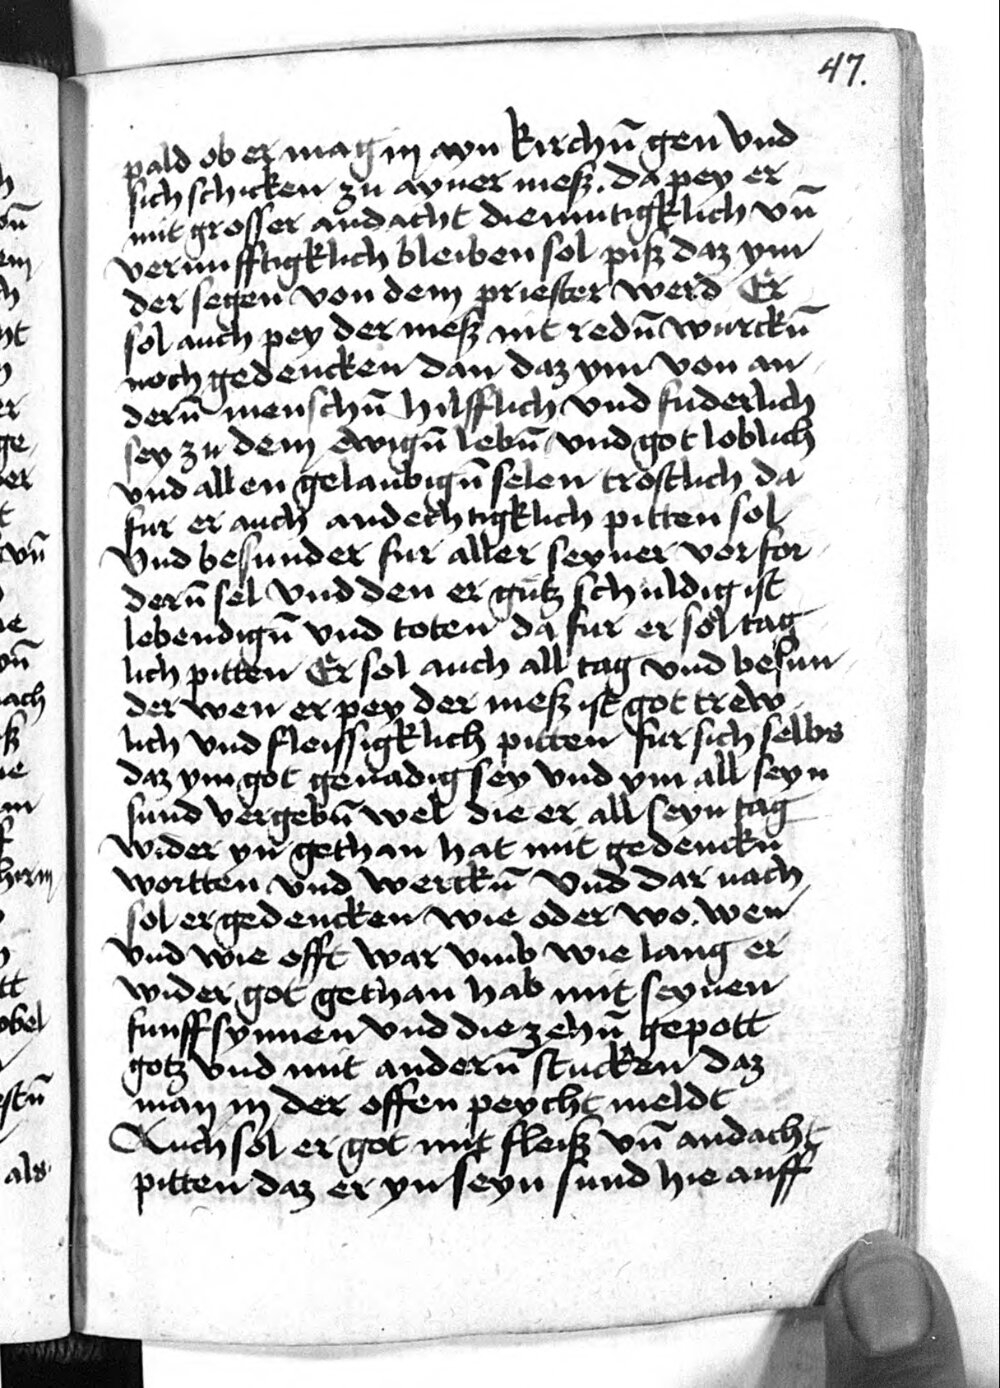 47.
pald ob er mag in ayn kirchn̄ gen vnd
sich schicken zu ayner meß. da pey er
mit grosser andacht diemutigklich vn̄
vernufftigklich bleiben sol piß daz ym
der segen von dem priester werd Er
sol auch pey der meß nit redn̄ wurckn̄
noch gedencken dan daz ym von an
dern̄ menschn̄ hilfflich vnd fuderlich
sey zu dem ewign̄ lebn̄ vnd got loblich
vnd allen gelaubign̄ selen trostlich da
fur er auch andechtigklich pitten sol
Vnd besunder fur aller seyner vor for
dern̄ sel vnd den er gutz schuldig ist
lebendign̄ vnd toten da fur er sol tag
lich pitten Er sol auch all tag vnd besun
der wen er pey der meß ist got trew
lich vnd fleissigklich pitten fur sich selbs
daz ym got genadig sey vnd ym all seyn
sund vergebn̄ wel die er all seyn tag
wider yn gethan hat mit gedenckn̄
wortten vnd werckn̄ Vnd dar nach
sol er gedencken wie oder wo. wen
vnd wie offt war vmb wie lang er
wider got gethan hab mit seynen
funff synnen vnd die zehn̄ gepott
gotz vnd mit andern̄ stucken daz
man in der offen peycht meldt
Auch sol er got mit fleiß vn̄ andacht
pitten daz er yn seyn sund hie auff